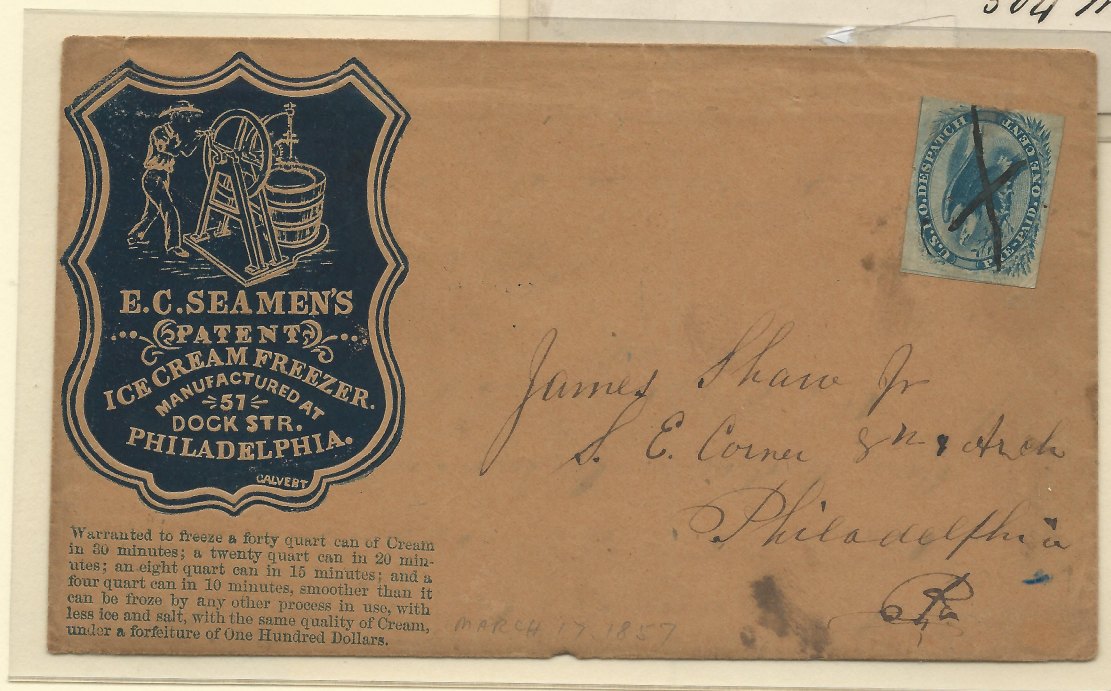 504
E.C.SEAMEN'S
PATENT
ICE CREAM FREEZER.
MANUFACTURED AT
57
DOCK STR.
PHILADELPHIA.
CALVERT
Warranted to freeze a forty quart can of Cream
in 30 minutes; a twenty quart can in 20 min-
utes; an eight quart can in 15 minutes; and a
four quart can in 10 minutes, smoother than it
can be froze by any other process in use, with
less ice and salt, with the same quality of Cream,
under a forfeiture of One Hundred Dollars.
U.S.P.O.DESPATCH
PRE-PAID.ONE CENT
James Shaw Jr
S. E. Corner 8th & Arch
Philadelphia
Pa
MARCH 17, 1857